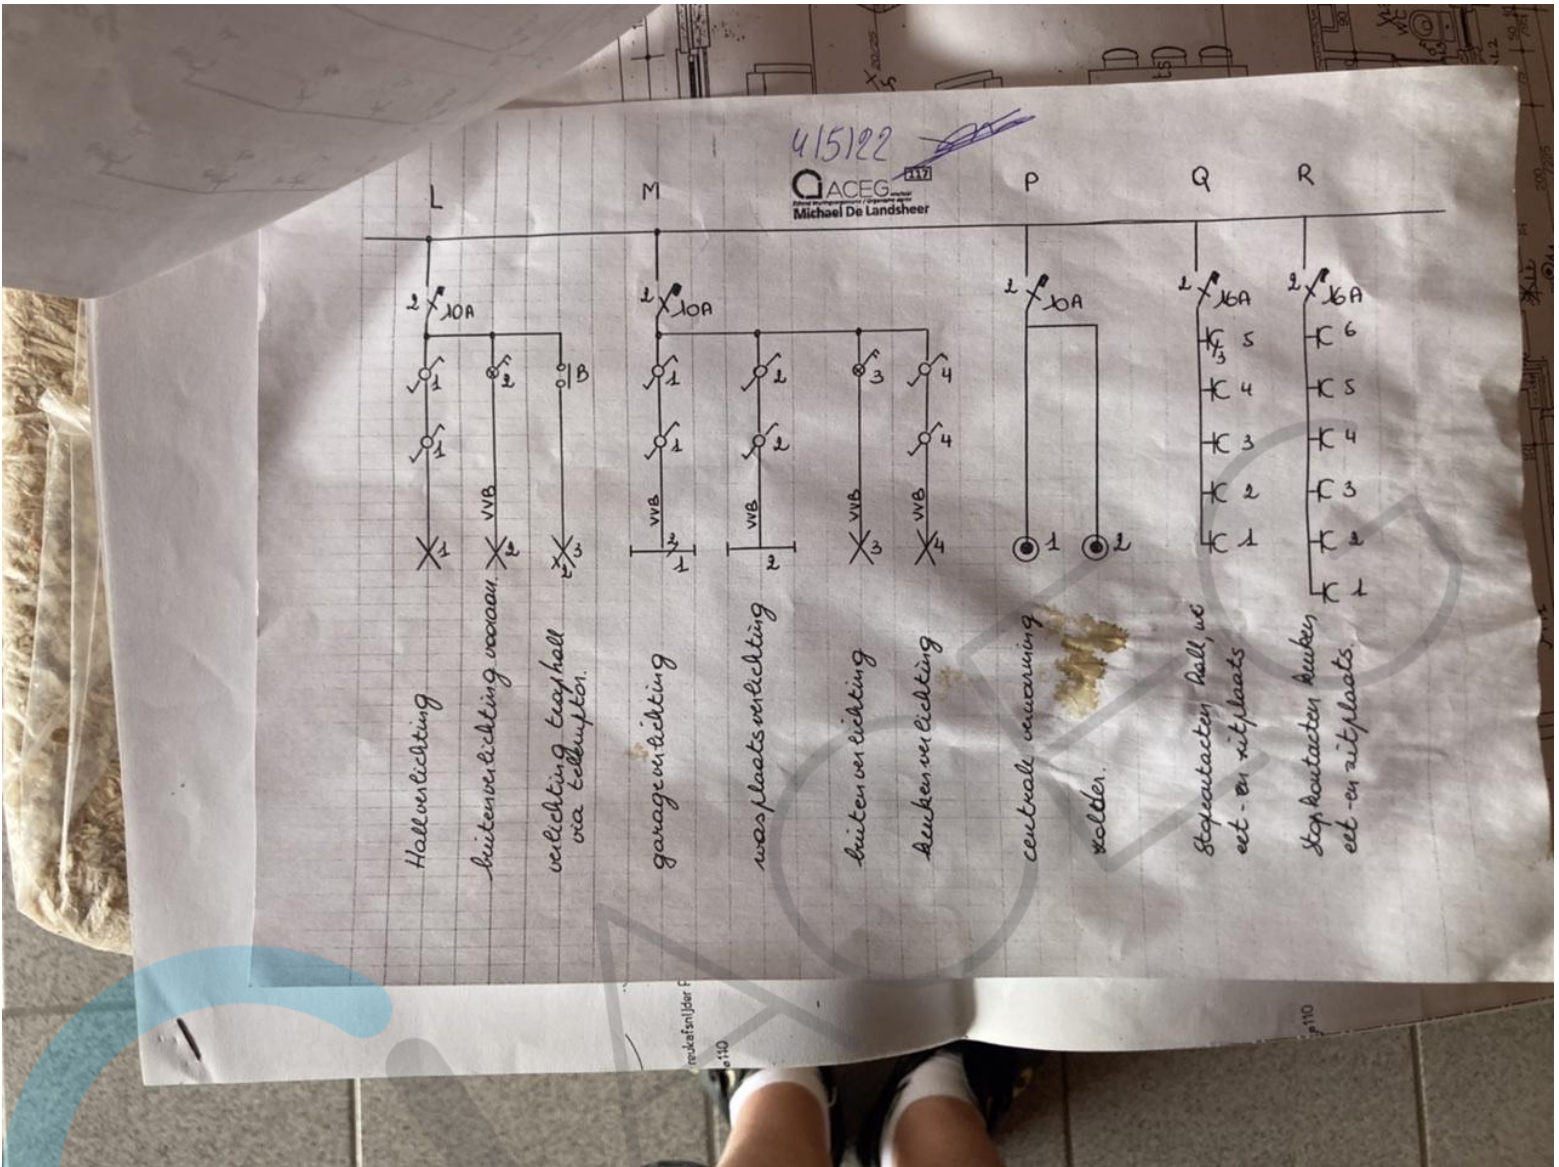 4/5/22
117
ACEG
Michael De Landsheer
L
M
P
Q
R
2 10A
2 10A
2 10A
2 16A
2 16A
1
2
B
1
2
3
4
1
1
2
4
VVB
VVB
VVB
VVB
VVB
1
2
2 3
2 1
2
3
4
1
2
3 5
4
3
2
1
6
5
4
3
2
1
Hallverlichting
buitenverlichting vooraan
verlichting traphall
via teleruptor.
garageverlichting
wasplaatsverlichting
buitenverlichting
keukenverlichting
centrale verwarming
zolder.
Stopcontacten hall, wc
eet- en zitplaats
Stopkontakten keuken,
eet- en zitplaats.
reukafsnijder
ø110
ø110
ACEG